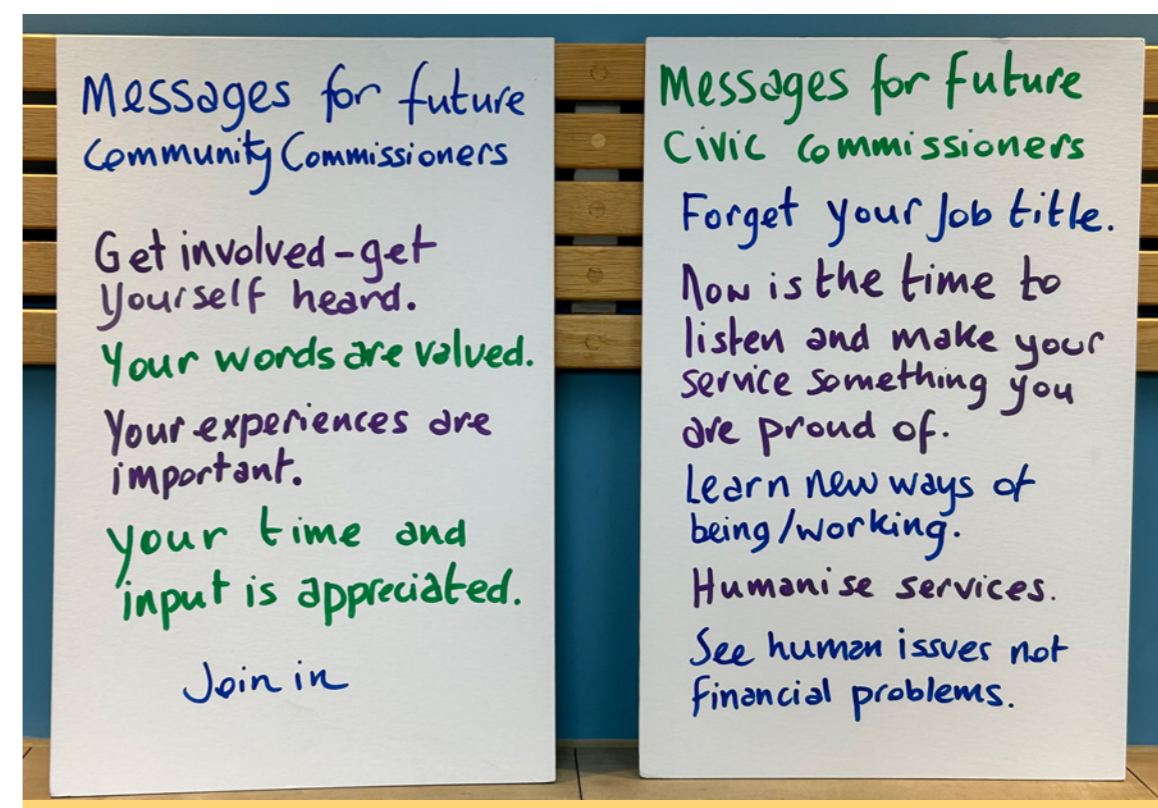 Messages for future
Community Commissioners
Get involved - get
yourself heard.
Your words are valued.
Your experiences are
important.
your time and
input is appreciated.
Join in
Messages for future
Civic Commissioners
Forget your Job title.
Now is the time to
listen and make your
service something you
are proud of.
Learn new ways of
being/working.
Humanise services.
See human issues not
financial problems.